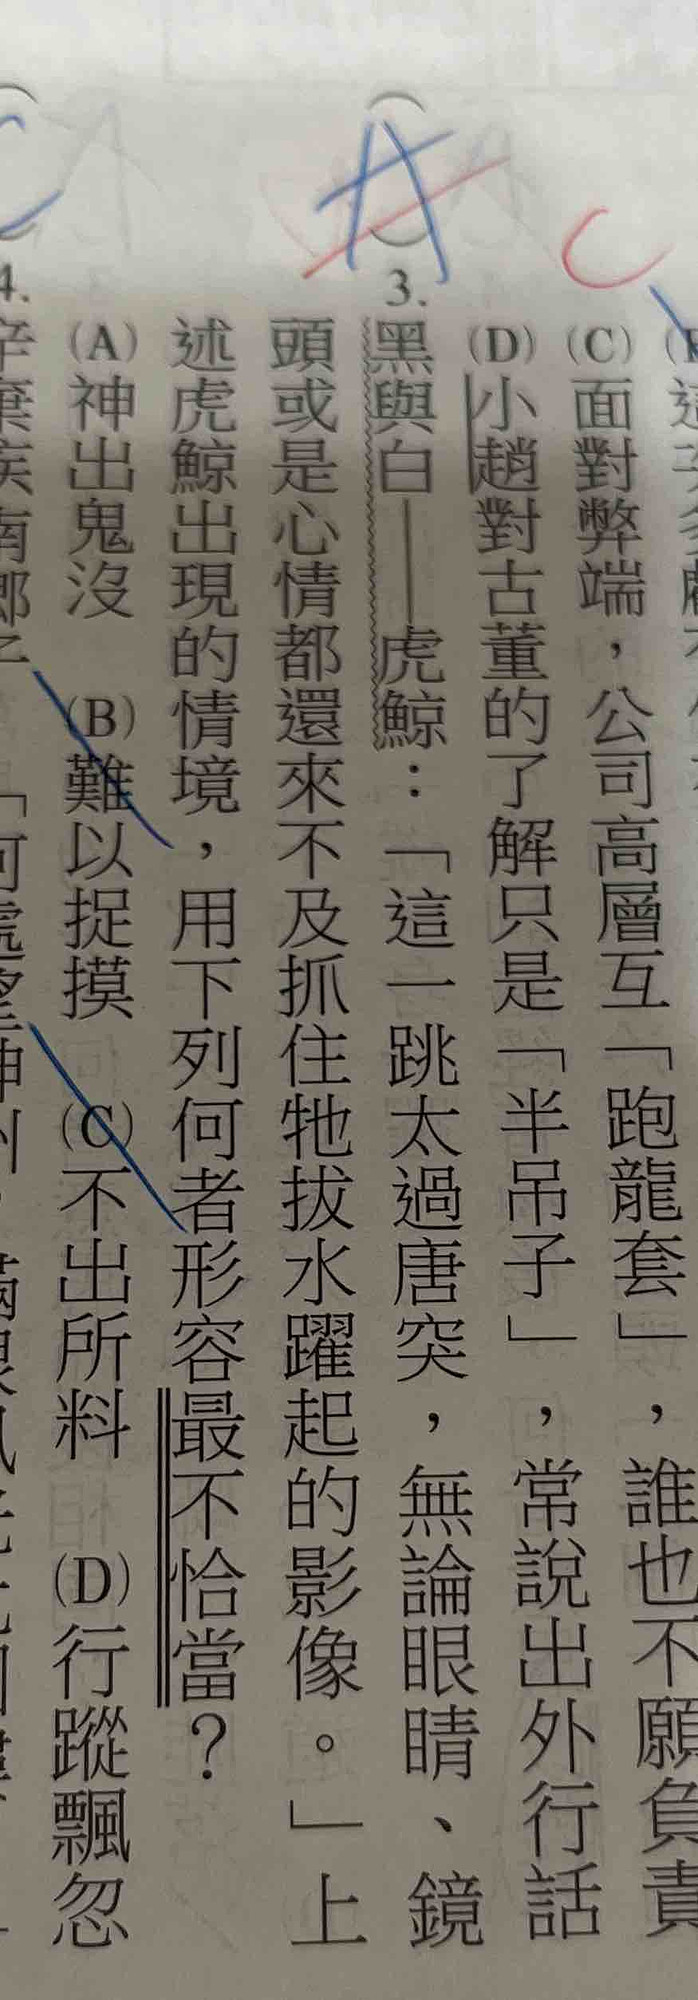 (C)面對弊端，公司高層互「跑龍套」，誰也不願負責
(D)小趙對古董的了解只是「半吊子」，常說出外行話
C
A
3.黑與白——虎鯨：「這一跳太過唐突，無論眼睛、鏡
頭或是心情都還來不及抓住牠拔水躍起的影像。」上
述虎鯨出現的情境，用下列何者形容最不恰當？
(A)神出鬼沒 (B)難以捉摸 (C)不出所料 (D)行蹤飄忽
4.